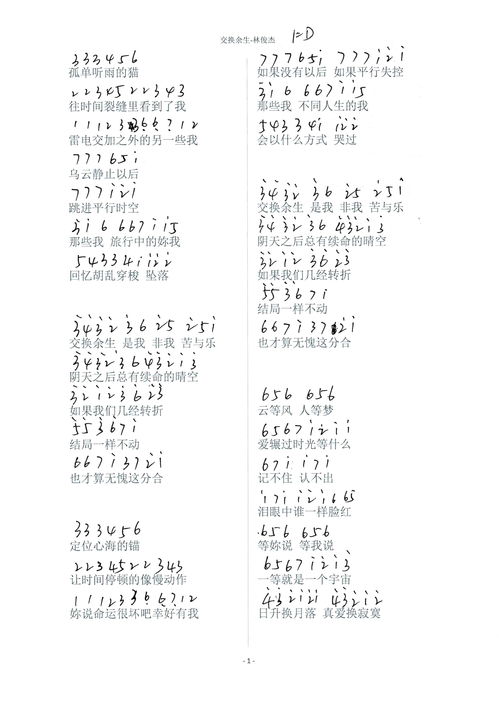 交换余生-林俊杰 1=D
3 3 3 4 5 6
孤单听雨的猫
2 2 3 4 5 2 2 3 4 3
往时间裂缝里看到了我
雷电交加之外的另一些我
7 7 7 6 5 i
乌云静止以后
7 7 7 i 2 i
跳进平行时空
3 i 6 6 6 7 i i 5
那些我 旅行中的妳我
5 4 3 3 4 i i 2 2
回忆胡乱穿梭 坠落
3 4 3 2 3 6 2 5 2 5 i
交换余生 是我 非我 苦与乐
3 4 3 2 3 6 4 3 2 1 3
阴天之后总有续命的晴空
3 2 1 1 2 3 6 2 3
如果我们几经转折
5 5 3 6 7 i
结局一样不动
6 6 7 i 3 7 2 i
也才算无愧这分合
3 3 3 4 5 6
定位心海的锚
2 2 3 4 5 2 2 3 4 3
让时间停顿的像慢动作
1 1 1 2 3 3 6 6 7 1 2
妳说命运很坏吧幸好有我
7 7 7 6 5 i 7 7 7 i 2 i
如果没有以后 如果平行失控
3 i 6 6 6 7 i i 5
那些我 不同人生的我
5 4 3 3 4 i i 2 2
会以什么方式 哭过
3 4 3 2 3 6 2 5 2 5 i
交换余生 是我 非我 苦与乐
3 4 3 2 3 6 4 3 2 1 3
阴天之后总有续命的晴空
3 2 1 2 3 6 2 3
如果我们几经转折
5 5 3 6 7 i
结局一样不动
6 6 7 i 3 7 2 i
也才算无愧这分合
6 5 6 6 5 6
云等风 人等梦
6 5 6 7 i 2 i i
爱辗过时光等什么
6 7 i i 7 i
记不住 认不出
i 7 i i 2 i 6 6 5
泪眼中谁一样脸红
6 5 6 6 5 6
等妳说 等我说
6 5 6 7 i 2 i 3
一等就是一个宇宙
4 3 2 i 2 i 4 3 2 i 2
日升换月落 真爱换寂寞
- 1 -